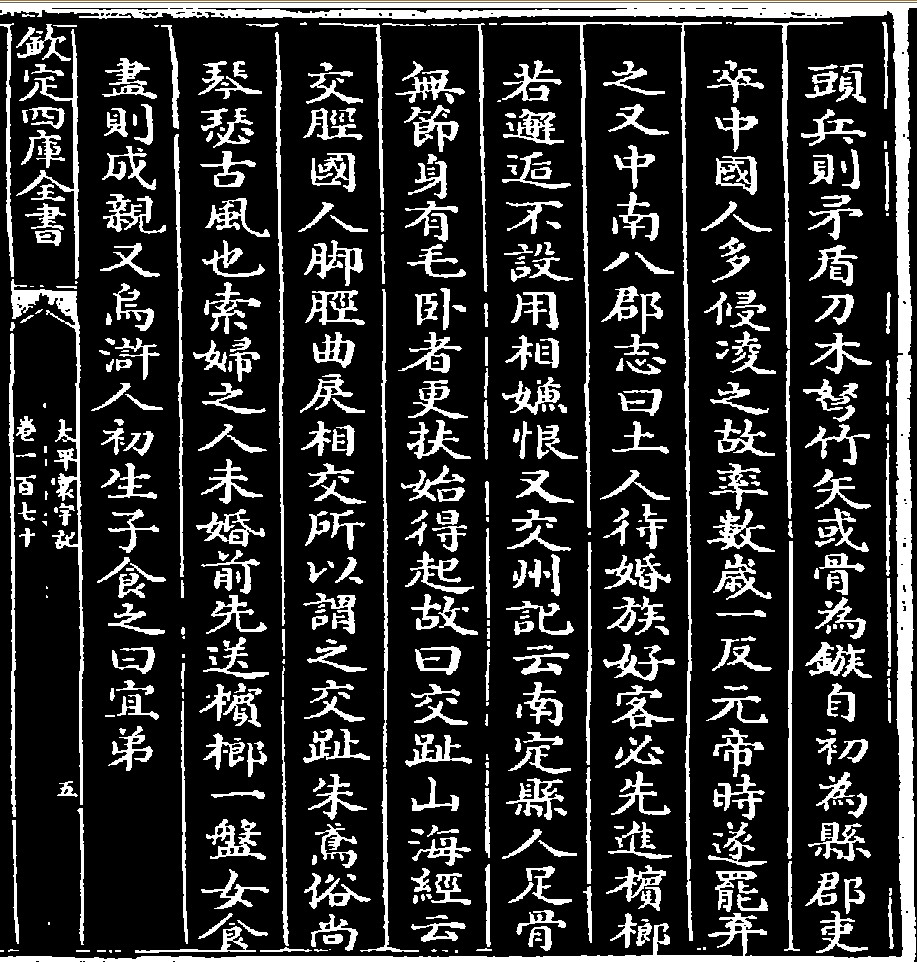 頭兵則矛盾刀木弩竹矢或骨為鏃自初為縣郡吏
卒中國人多侵凌之故率數歲一反元帝時遂罷弃
之又中南八郡志曰土人待婚族好客必先進檳榔
若邂逅不設用相嫌恨又交州記云南定縣人足骨
無節身有毛卧者更扶始得起故曰交趾山海經云
交脛國人脚脛曲戾相交所以謂之交趾朱鳶俗尚
琴瑟古風也索婦之人未婚前先送檳榔一盤女食
盡則成親又烏滸人初生子食之曰宜弟
欽定四庫全書
太平寰宇記
卷一百七十
五